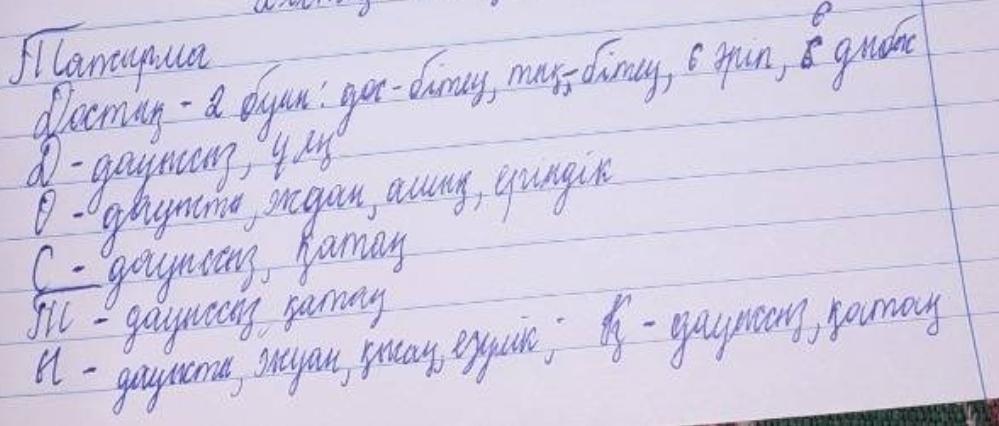 Тапсырма
Достық - 2 буын: дос-бітеу, тық-бітеу, 6 әріп, 6 дыбыс
Д - дауыссыз, ұяң
О - дауысты, жуан, ашық, еріндік
С - дауыссыз, қатаң
Т - дауыссыз, қатаң
Ы - дауысты, жуан, қысаң, езулік; Қ - дауыссыз, қатаң